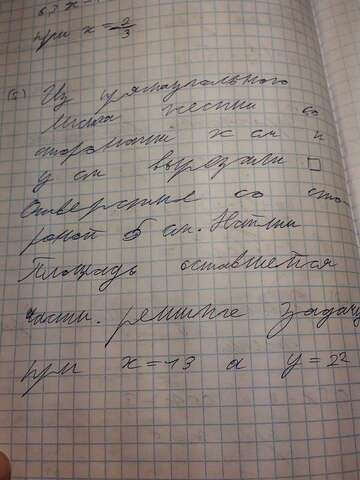 при x = -2/3
(5) Из прямоугольного
листа жести со
сторонами x см и
y см вырезали □
отверстие со сто
роной 5 см. Найти
площадь оставшейся
части. решите задачу
при x = 13 а y = 22